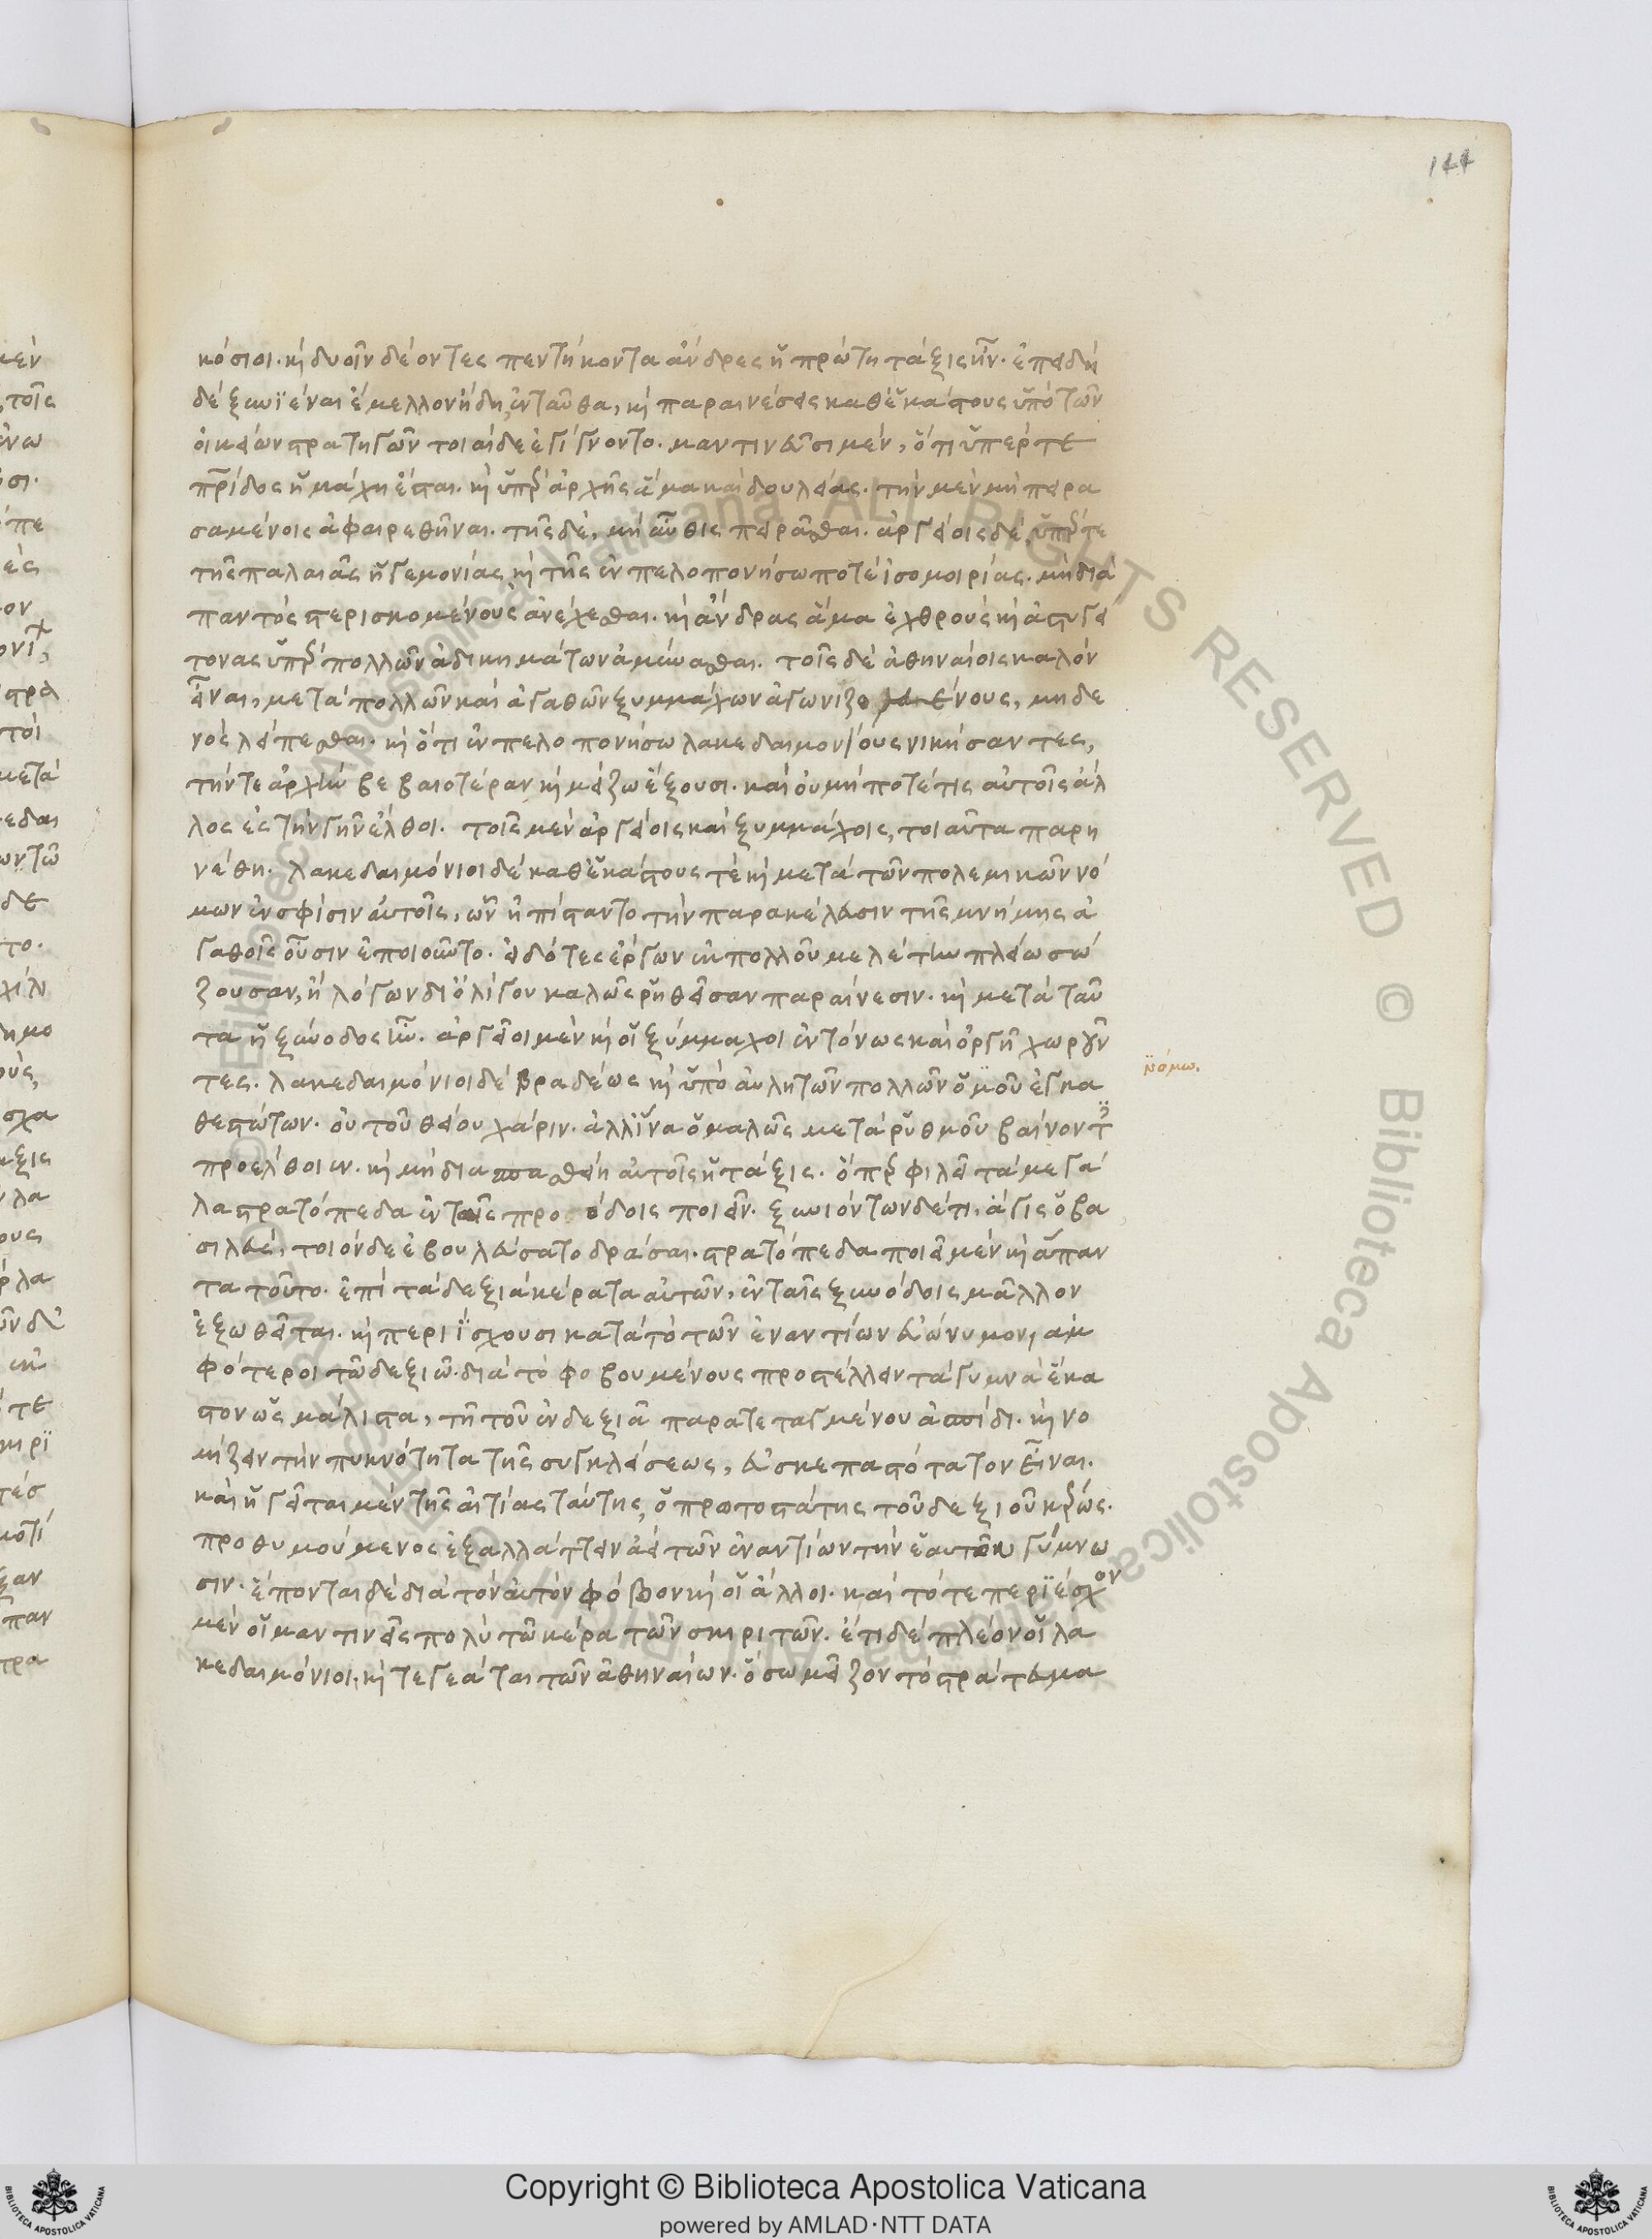 144
κόσιοι. καὶ δυοῖν δέοντες πεντήκοντα ἄνδρες ἡ πρώτη τάξις ἦν. ἐπειδὴ
δὲ ξυνϊέναι ἔμελλον ἤδη, ἐνταῦθα, καὶ παραινέσεις καθ' ἑκάστους ὑπὸ τῶν
οἰκείων στρατηγῶν τοιαίδε ἐγίγνοντο. μαντινεῦσι μέν, ὅτι ὑπέρ τε
πρίδος ἡ μάχη ἔσται. καὶ ὑπὲρ ἀρχῆς ἅμα καὶ δουλείας. τὴν μὲν μὴ πειρα
σαμένοις ἀφαιρεθῆναι. τῆς δέ, μὴ αὖθις πειρᾶσθαι. ἀργείοις δέ, ὑπέρ τε
τῆς παλαιᾶς ἡγεμονίας, καὶ τῆς ἐν πελοπονήσω ποτὲ ἰσομοιρίας. μὴ διὰ
παντὸς στερισκομένους ἀνέχεσθαι. καὶ ἄνδρας ἅμα ἐχθροὺς καὶ ἀστυγεί
τονας ὑπὲρ πολλῶν ἀδικημάτων ἀμύνασθαι. τοῖς δὲ ἀθηναίοις καλὸν
εἶναι, μετὰ πολλῶν καὶ ἀγαθῶν ξυμμάχων ἀγωνιζομένους, μηδε
νὸς λείπεσθαι. καὶ ὅτι ἐν πελοπονήσω λακεδαιμονίους νικήσαντες,
τήν τε ἀρχὴν βεβαιοτέραν καὶ μείζω ἕξουσι. καὶ οὐ μή ποτέ τις αὐτοῖς ἄλ
λος ἐς τὴν γῆν ἔλθοι. τοῖς μὲν ἀργείοις καὶ ξυμμάχοις, τοιαῦτα παρη
νέθη. λακεδαιμόνιοι δὲ καθ' ἑκάστους τὲ καὶ μετὰ τῶν πολεμικῶν νό
μων ἐν σφίσιν αὐτοῖς, ὧν ἠπίσταντο τὴν παρακέλευσιν τῆς μνήμης ἀ
γαθοῖς οὖσιν ἐποιοῦντο. εἰδότες ἔργων ἐκ πολλοῦ μελέτην πλείω σώ
ζουσαν, ἢ λόγων δι' ὀλίγου καλῶς ῥηθεῖσαν παραίνεσιν. καὶ μετὰ ταῦ
τα ἡ ξύνοδος ἦν. ἀργεῖοι μὲν καὶ οἱ ξύμμαχοι ἐντόνως καὶ ὀργῆ χωροῦν
τες. λακεδαιμόνιοι δὲ βραδέως καὶ ὑπὸ αὐλητῶν πολλῶν ὁμοῦ ἐγκα
νόμω.
θεστώτων. οὐ τοῦ θείου χάριν. ἀλλ' ἵνα ὁμαλῶς μετὰ ῥυθμοῦ βαίνοντες
προέλθοιεν. καὶ μὴ διασπασθείη αὐτοῖς ἡ τάξις. ὅπερ φιλεῖ τὰ μεγά
λα στρατόπεδα ἐν ταῖς προσόδοις ποιεῖν. ξυνιόντων δέτι, ἄγις ὁ βα
σιλεύς, τοιόνδε ἐβουλεύσατο δράσαι. στρατόπεδα ποιεῖ μὲν καὶ ἅπαν
τα τοῦτο. ἐπὶ τὰ δεξιὰ κέρατα αὐτῶν, ἐν ταῖς ξυνόδοις μᾶλλον
ἐξωθεῖται. καὶ περιΐσχουσι κατὰ τὸ τῶν ἐναντίων εὐώνυμον, ἀμ
φότεροι τῶ δεξιῶ. διὰ τὸ φοβουμένους προστέλλειν τὰ γυμνὰ ἕκα
στον ὡς μάλιστα, τῆ τοῦ ἐν δεξιᾶ παρατεταγμένου ἀσπίδι. καὶ νο
μίζειν τὴν πυκνότητα τῆς συγκλείσεως, εὐσκεπαστότατον εἶναι.
καὶ ἡγεῖται μὲν τῆς αἰτίας ταύτης, ὁ πρωτοστάτης τοῦ δεξιοῦ κέρως.
προθυμούμενος ἐξαλλάττειν ἀεὶ τῶν ἐναντίων τὴν ἑαυτοῦ γύμνω
σιν. ἕπονται δὲ διὰ τὸν αὐτὸν φόβον καὶ οἱ ἄλλοι. καὶ τότε περιέσχον
μὲν οἱ μαντινεῖς πολὺ τῶ κέρα τῶν σκιριτῶν. ἔτι δὲ πλέον οἱ λα
κεδαιμόνιοι. καὶ τεγεάται τῶν ἀθηναίων. ὅσω μεῖζον τὸ στράτευμα
Copyright © Biblioteca Apostolica Vaticana
powered by AMLAD·NTT DATA